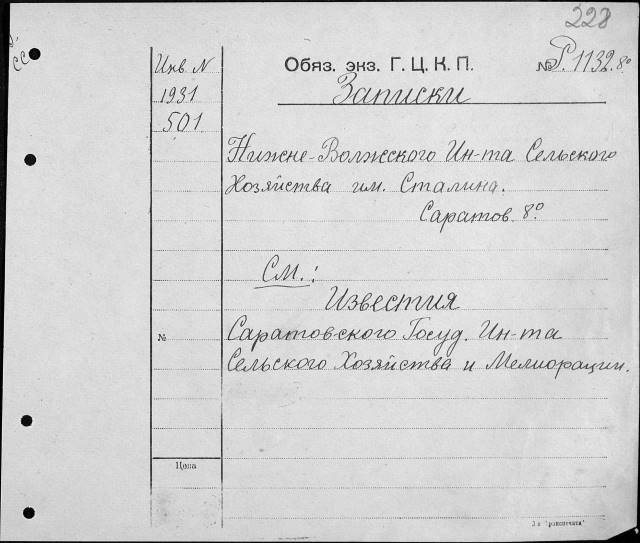 228
Обяз. экз. Г. Ц. К. П.
№ Р. 1132. 8º
Инв. N
1931
501
Записки
Нижне-Волжского Ин-та Сельского
Хозяйства им. Сталина.
Саратов 8º
См.:
Известия
№
Саратовского Госуд. Ин-та
Сельского Хозяйства и Мелиорации.
Цена